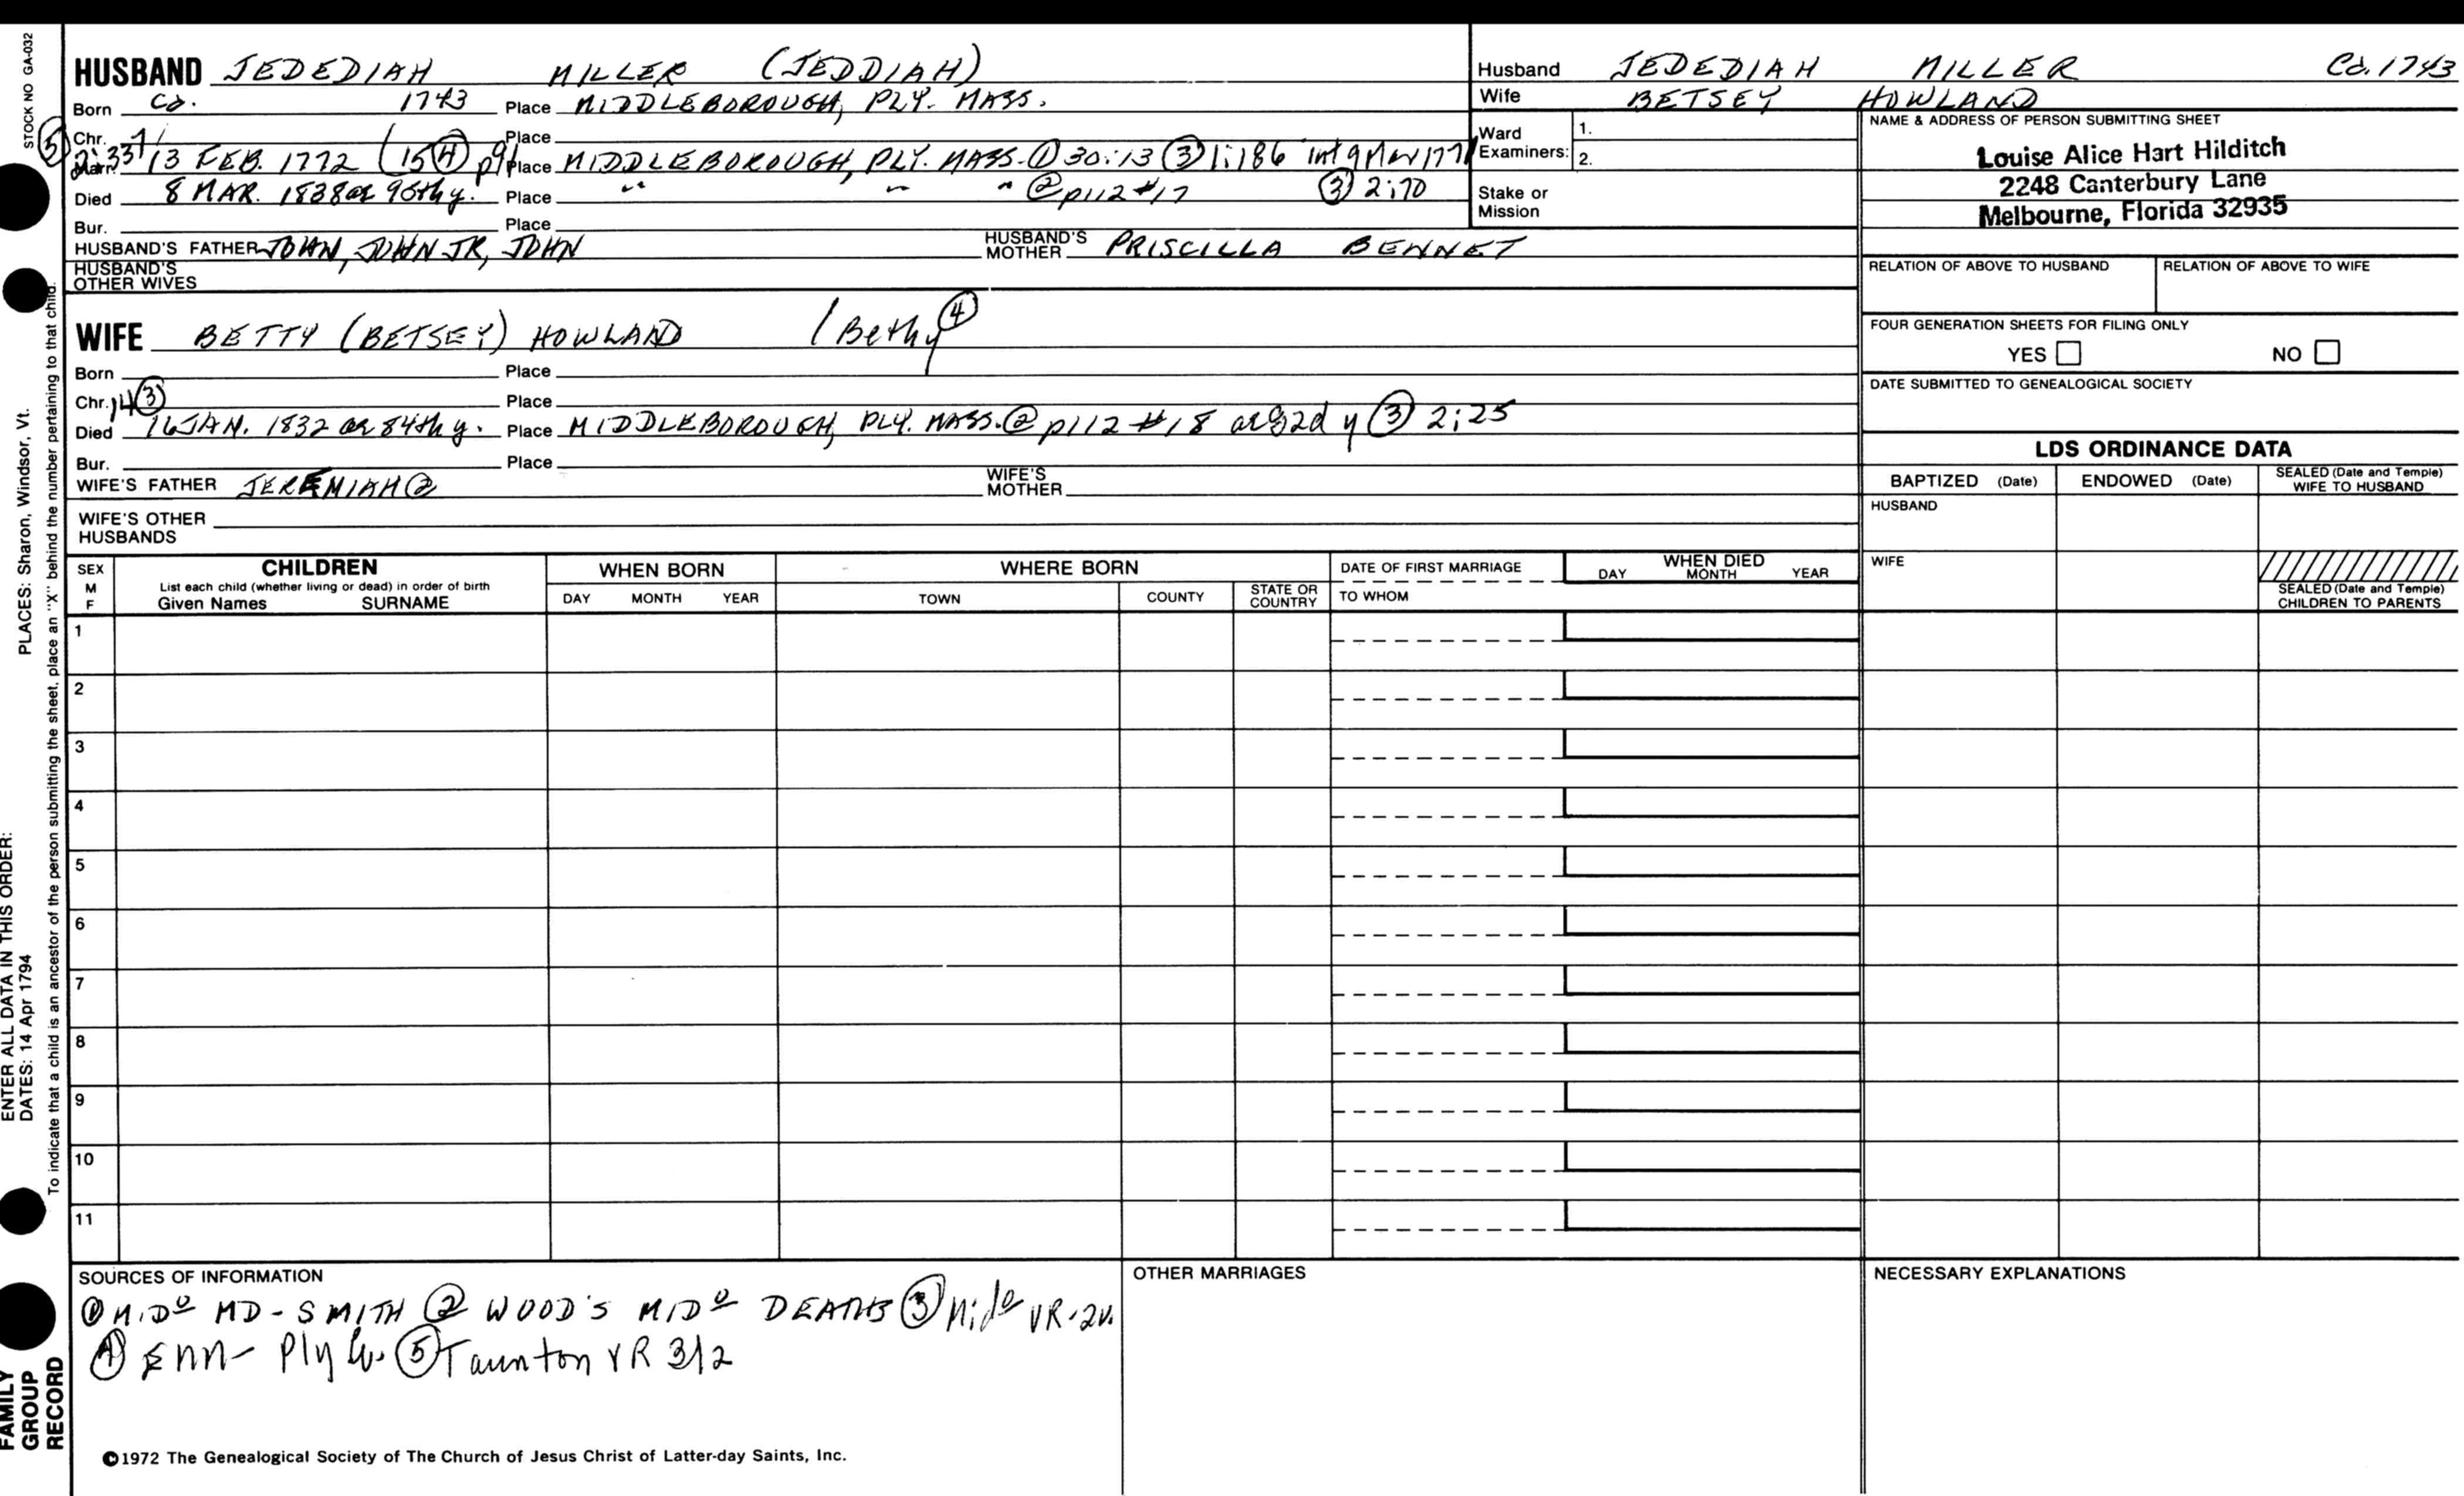 STOCK NO GA-032
PLACES: Sharon, Windsor, Vt.
ENTER ALL DATA IN THIS ORDER:
DATES: 14 Apr 1794
To indicate that a child is an ancestor of the person submitting the sheet, place an "X" behind the number pertaining to that child.
FAMILY
GROUP
RECORD
HUSBAND JEDEDIAH MILLER (JEDDIAH)
Born Ca. 1743 Place MIDDLEBOROUGH, PLY. MASS.
Chr. Place
Marr. 13 FEB. 1772 (15 ④ p91 Place MIDDLEBOROUGH, PLY. MASS. ① 30:13 ③ 1:186 int 9 Mar 1771
⑤ 2:337
Died 8 MAR. 1838 ae 96th y. Place " " " ② p112 #17 ③ 2:70
Bur. Place
HUSBAND'S FATHER JOHN, JOHN JR, JOHN HUSBAND'S MOTHER PRISCILLA BENNET
HUSBAND'S OTHER WIVES
WIFE BETTY (BETSEY) HOWLAND (Bethy ④
Born Place
Chr. 14 ③ Place
Died 16 JAN. 1832 ae 84th y. Place MIDDLEBOROUGH, PLY. MASS. ② p112 #18 ae 82d y ③ 2:25
Bur. Place
WIFE'S FATHER JEREMIAH ② WIFE'S MOTHER
WIFE'S OTHER HUSBANDS
Husband JEDEDIAH MILLER Ca. 1743
Wife BETSEY HOWLAND
Ward Examiners: 1.
2.
Stake or Mission
NAME & ADDRESS OF PERSON SUBMITTING SHEET
Louise Alice Hart Hilditch
2248 Canterbury Lane
Melbourne, Florida 32935
RELATION OF ABOVE TO HUSBAND RELATION OF ABOVE TO WIFE
FOUR GENERATION SHEETS FOR FILING ONLY
YES NO
DATE SUBMITTED TO GENEALOGICAL SOCIETY
LDS ORDINANCE DATA
BAPTIZED (Date) ENDOWED (Date) SEALED (Date and Temple) WIFE TO HUSBAND
HUSBAND
WIFE
SEALED (Date and Temple) CHILDREN TO PARENTS
SEX M F CHILDREN WHEN BORN WHERE BORN DATE OF FIRST MARRIAGE WHEN DIED
List each child (whether living or dead) in order of birth
Given Names SURNAME DAY MONTH YEAR TOWN COUNTY STATE OR COUNTRY TO WHOM DAY MONTH YEAR
1
2
3
4
5
6
7
8
9
10
11
SOURCES OF INFORMATION
① MIDº MD-SMITH ② WOOD'S MIDº DEATHS ③ Midº VR-2V.
④ Enn- Ply Co. ⑤ Taunton VR 3/2
OTHER MARRIAGES
NECESSARY EXPLANATIONS
©1972 The Genealogical Society of The Church of Jesus Christ of Latter-day Saints, Inc.